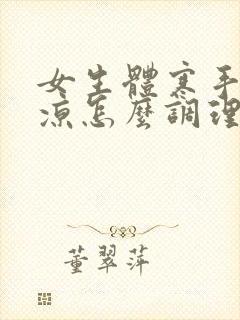 女生體寒手
涼怎麼調理
董翠萍